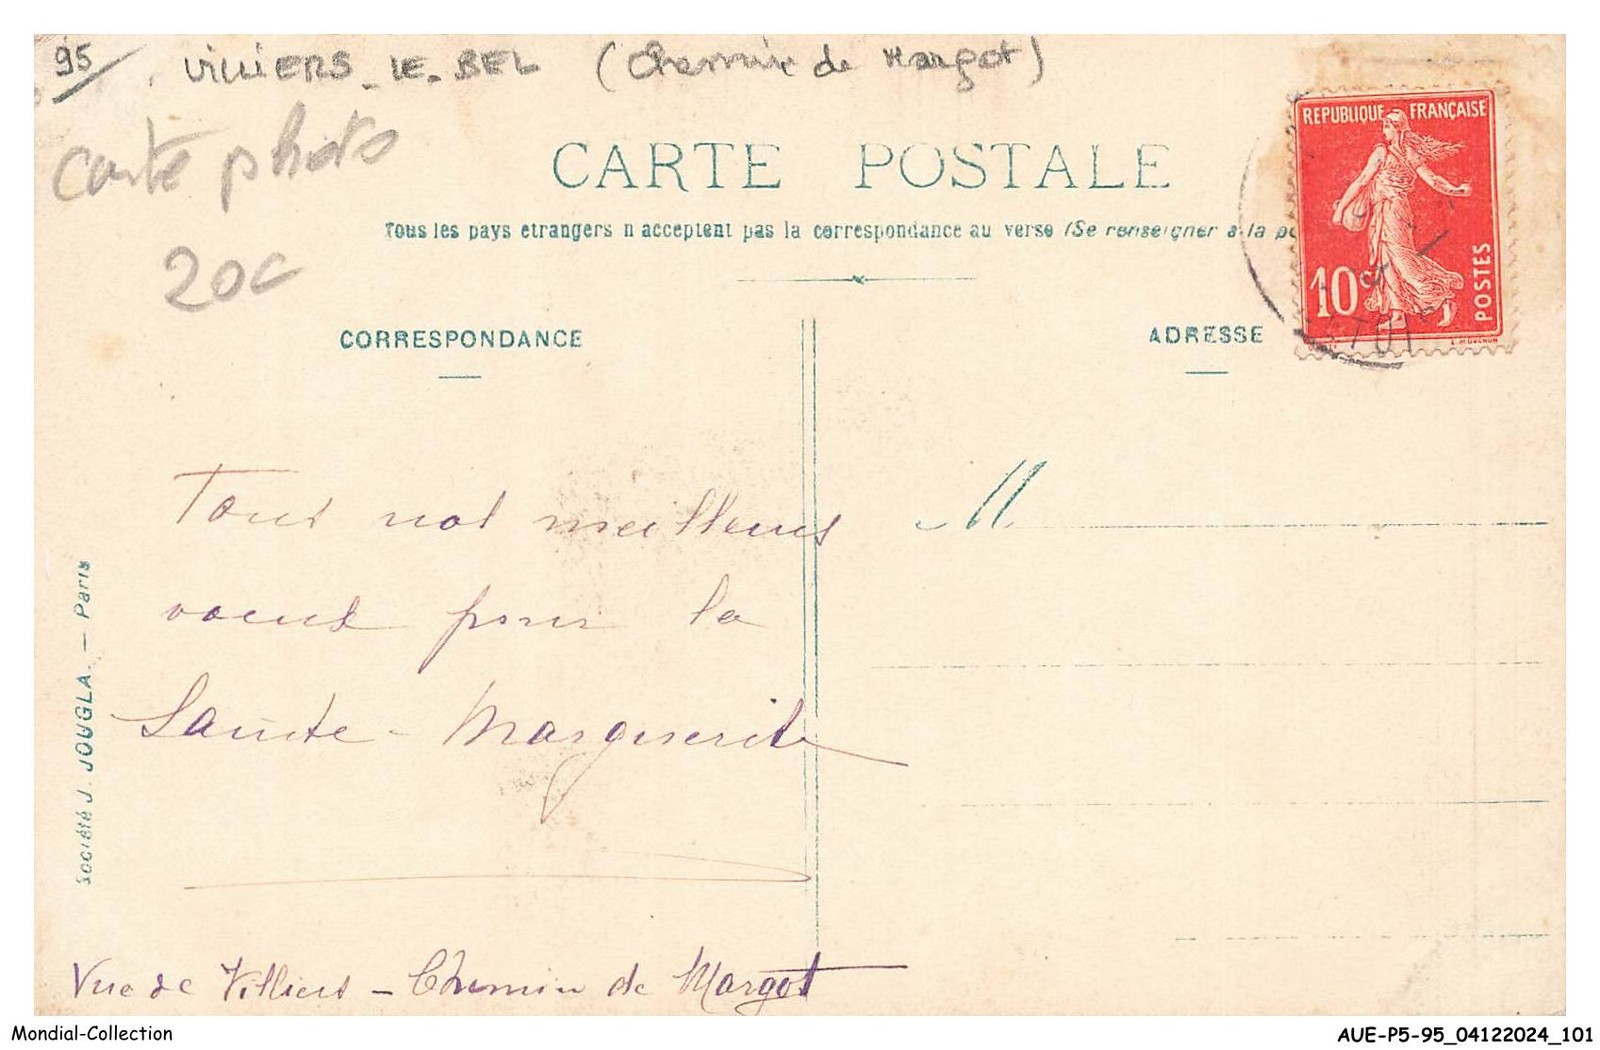 95 VILLIERS-LE-BEL (Chemin de Margot)
carte photo
20c
CARTE POSTALE
Tous les pays etrangers n acceptent pas la correspondance au verso (Se renseigner à la
REPUBLIQUE FRANÇAISE
10c
POSTES
CORRESPONDANCE
ADRESSE
Tous nos meilleurs
voeux pour la
Sainte-Marguerite
M
Société J. JOUGLA. — Paris
Vue de Villiers - Chemin de Margot
Mondial-Collection
AUE-P5-95_04122024_101